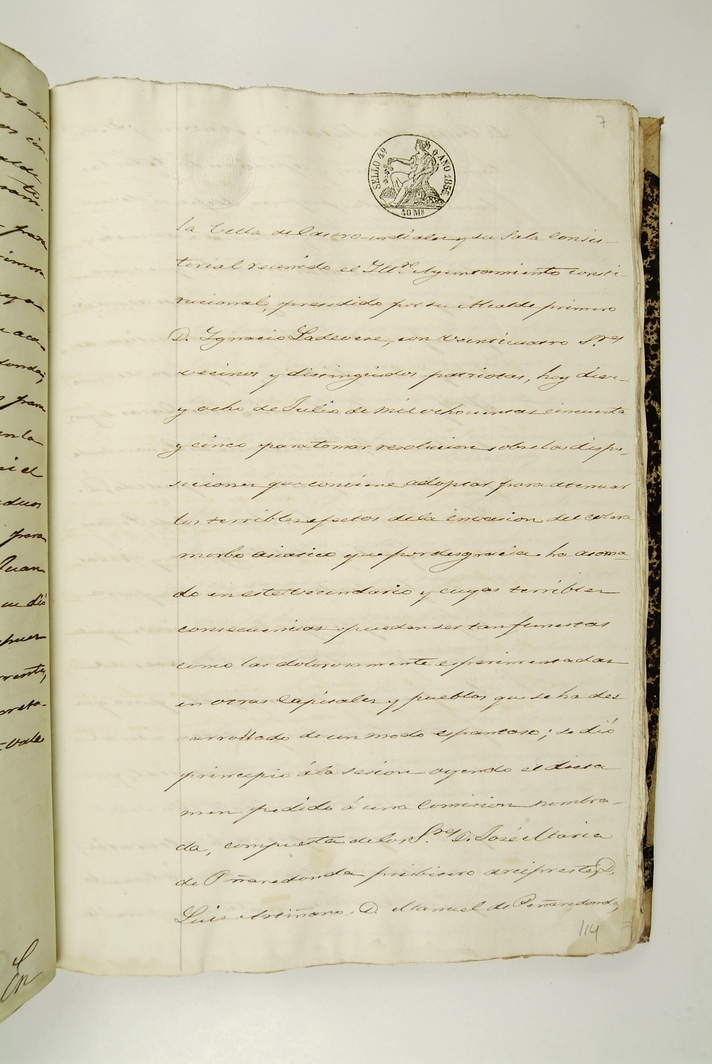 7
SELLO 4º AÑO 1855
40 Ms
la Villa de Castro urdiales y su Sala Consis-
torial reunido el Iltre Ayuntamiento Consti-
tucional, presidido por su Alcalde primero
D. Ygnacio Ladevese, con veinticuatro Sres
vecinos y distinguidos patriotas, hoy diez
y ocho de Julio de mil ochocientos cincuenta
y cinco para tomar resolucion sobre las dispo-
siciones que conviene adoptar para atenuar
los terribles efectos de la invasion del colera
morbo asiatico que por desgracia ha asoma-
do en este vecindario y cuyas terribles
consecuencias pueden ser tan funestas
como las dolorosamente esperimentadas
en otras Capitales y pueblos que se ha des
arrollado de un modo espantoso; se dió
principio á la sesion oyendo el dicta
men pedido á una Comision nombra-
da, compuesta de los Sres D. José Maria
de Peñaredonda presbitero arcipreste, D.
Luis Artiñano, D. Manuel de Peñaredonda,
114
En
para
Juan
que dió
-vale